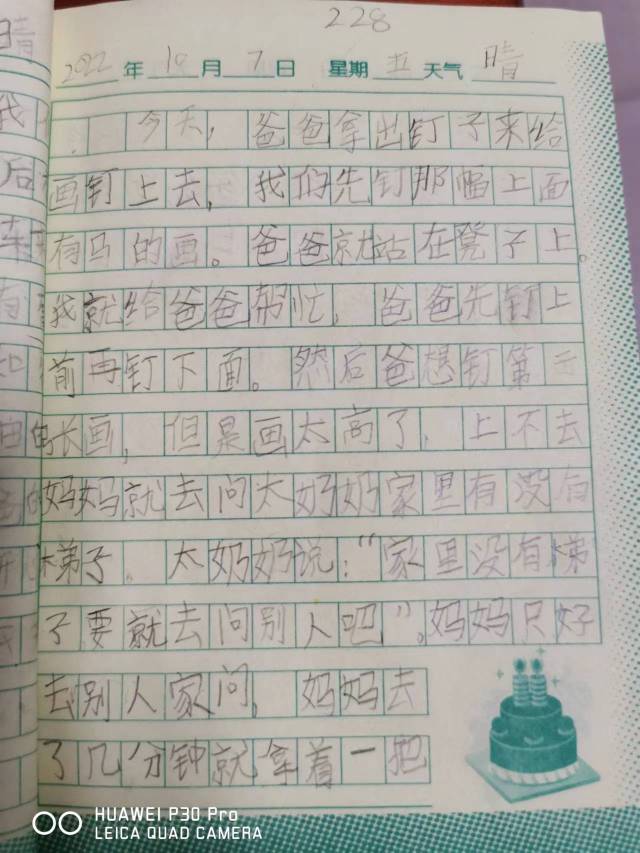 228
2022年10月7日 星期五天气晴
今天,爸爸拿出钉子来给
画钉上去,我们先钉那幅上面
有马的画。爸爸就站在凳子上。
我就给爸爸帮忙,爸爸先钉上
前再钉下面。然后爸想钉第二
张画,但是画太高了,上不去
妈妈就去问太奶奶家里有没有
梯子。太奶奶说:“家里没有梯
子要就去问别人吧”。妈妈只好
去别人家问,妈妈去
了几分钟就拿着一把
HUAWEI P30 Pro
LEICA QUAD CAMERA